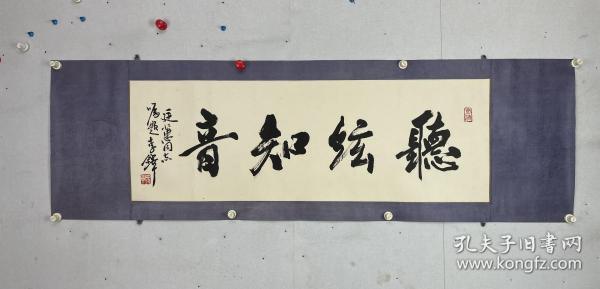 聽弦知音
同志
嘱题李铎
孔夫子旧书网
www.kongfz.com